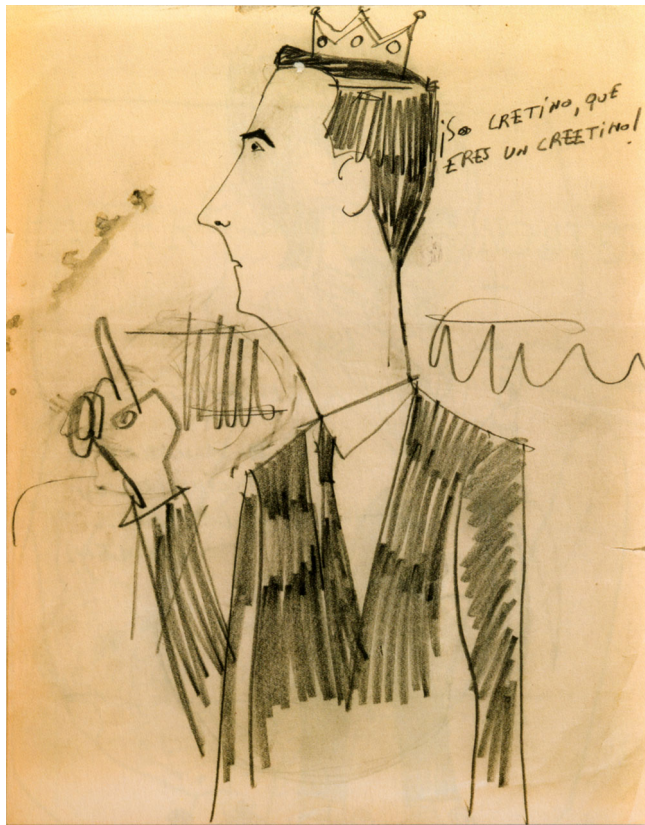 ¡SO CRETINO, QUE
ERES UN CREETINO!